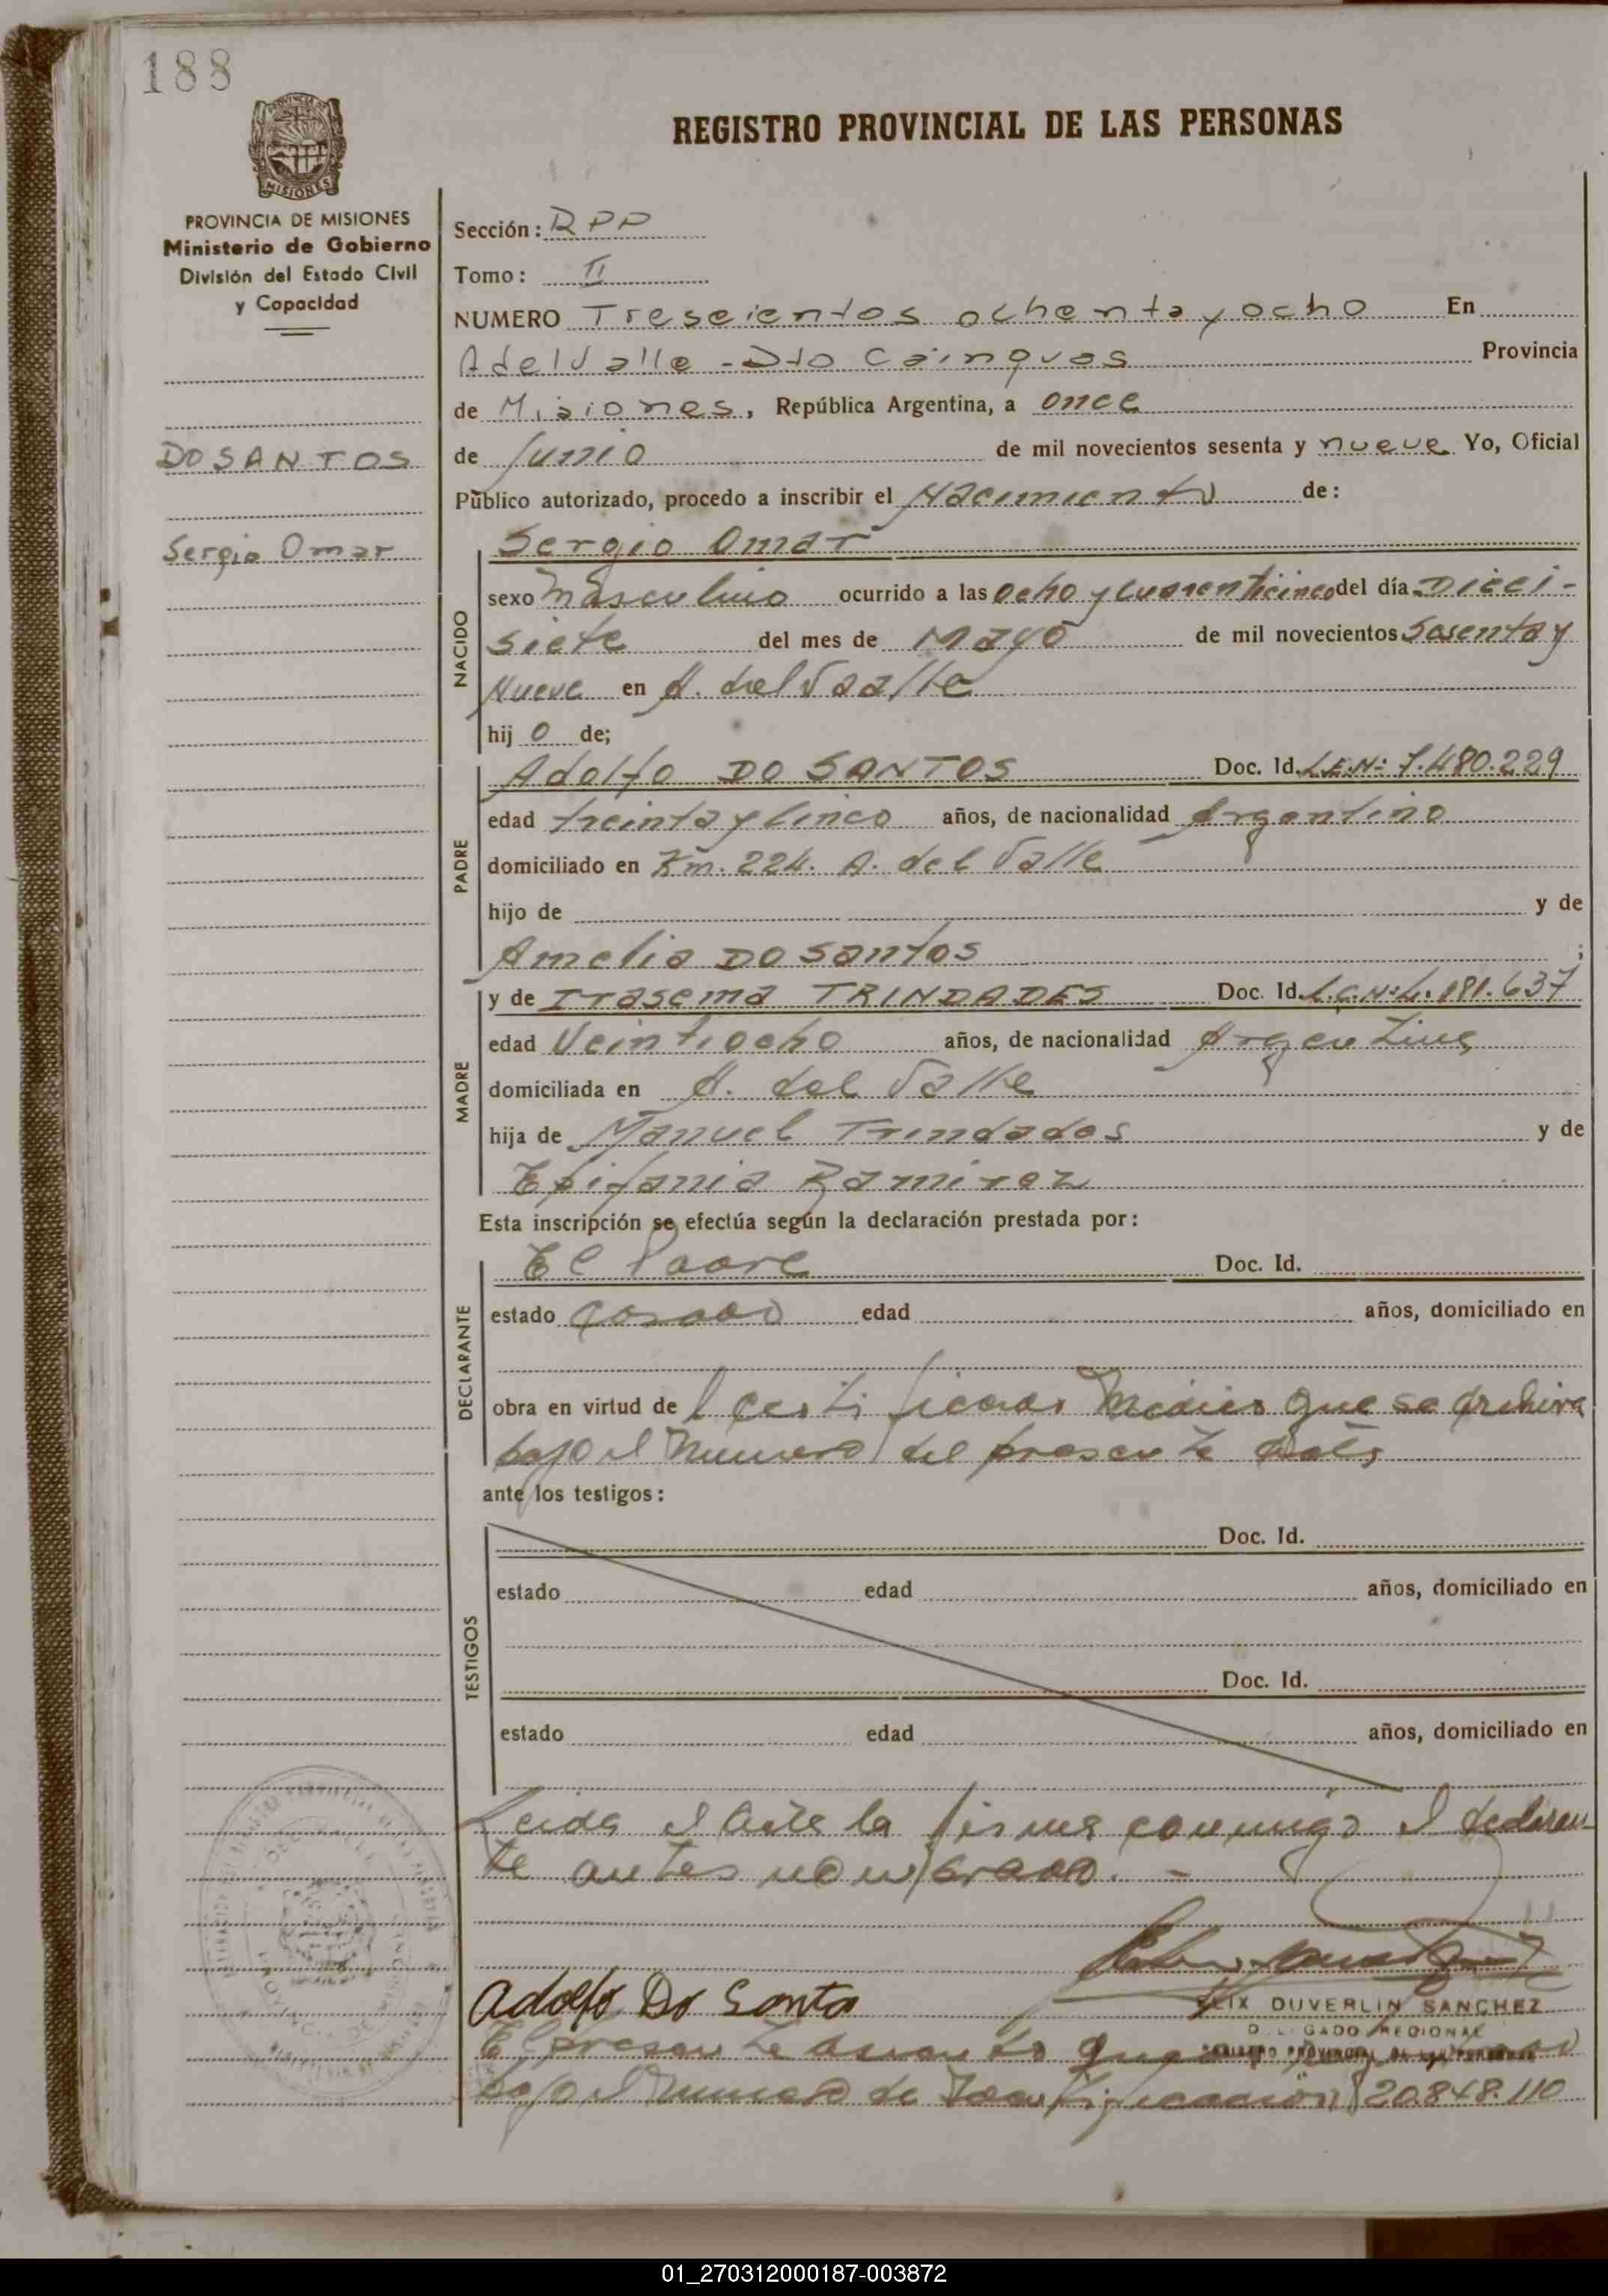 188
PROVINCIA DE MISIONES
MISIONES
PROVINCIA DE MISIONES
Ministerio de Gobierno
División del Estado Civil
y Capacidad
DO SANTOS
Sergio Omar
REGISTRO PROVINCIAL DE LAS PERSONAS
Sección: RPP
Tomo: II
NUMERO Trescientos ochenta y ocho En
A del Valle - Dto Cainguas Provincia
de Misiones, República Argentina, a once
de Junio de mil novecientos sesenta y nueve Yo, Oficial
Público autorizado, procedo a inscribir el Nacimiento de:
NACIDO
Sergio Omar
sexo Masculino ocurrido a las ocho y cuarenticinco del día Dieci-
siete del mes de Mayo de mil novecientos Sesenta y
Nueve en A. del Vaalle
hij o de;
PADRE
Adolfo DO SANTOS Doc. Id. L.E.N: 7.480.229
edad treinta y cinco años, de nacionalidad Argentino
domiciliado en Km. 224. A. del Valle
hijo de y de
Amelia DO Santos ;
MADRE
y de Irasema TRINDADES Doc. Id. L.C.N: 4.181.637
edad Veintiocho años, de nacionalidad Argentina
domiciliada en A. del Valle
hija de Manuel Trindades y de
Epifania Ramirez
Esta inscripción se efectúa según la declaración prestada por:
DECLARANTE
El Padre Doc. Id.
estado casado edad años, domiciliado en
obra en virtud de Certificado Medico que se archiva
bajo el Numero del presente Acta
ante los testigos:
TESTIGOS
Doc. Id.
estado edad años, domiciliado en
Doc. Id.
estado edad años, domiciliado en
Leida el Acta la firma conmigo el declaran
te antes nombrado. -
Adolfo Do Santo
FELIX DUVERLIN SANCHEZ
DELEGADO REGIONAL
REGISTRO PROVINCIAL DE LAS PERSONAS
El presente asiento
bajo el Numero de Identificación 20.848.110
01_270312000187-003872